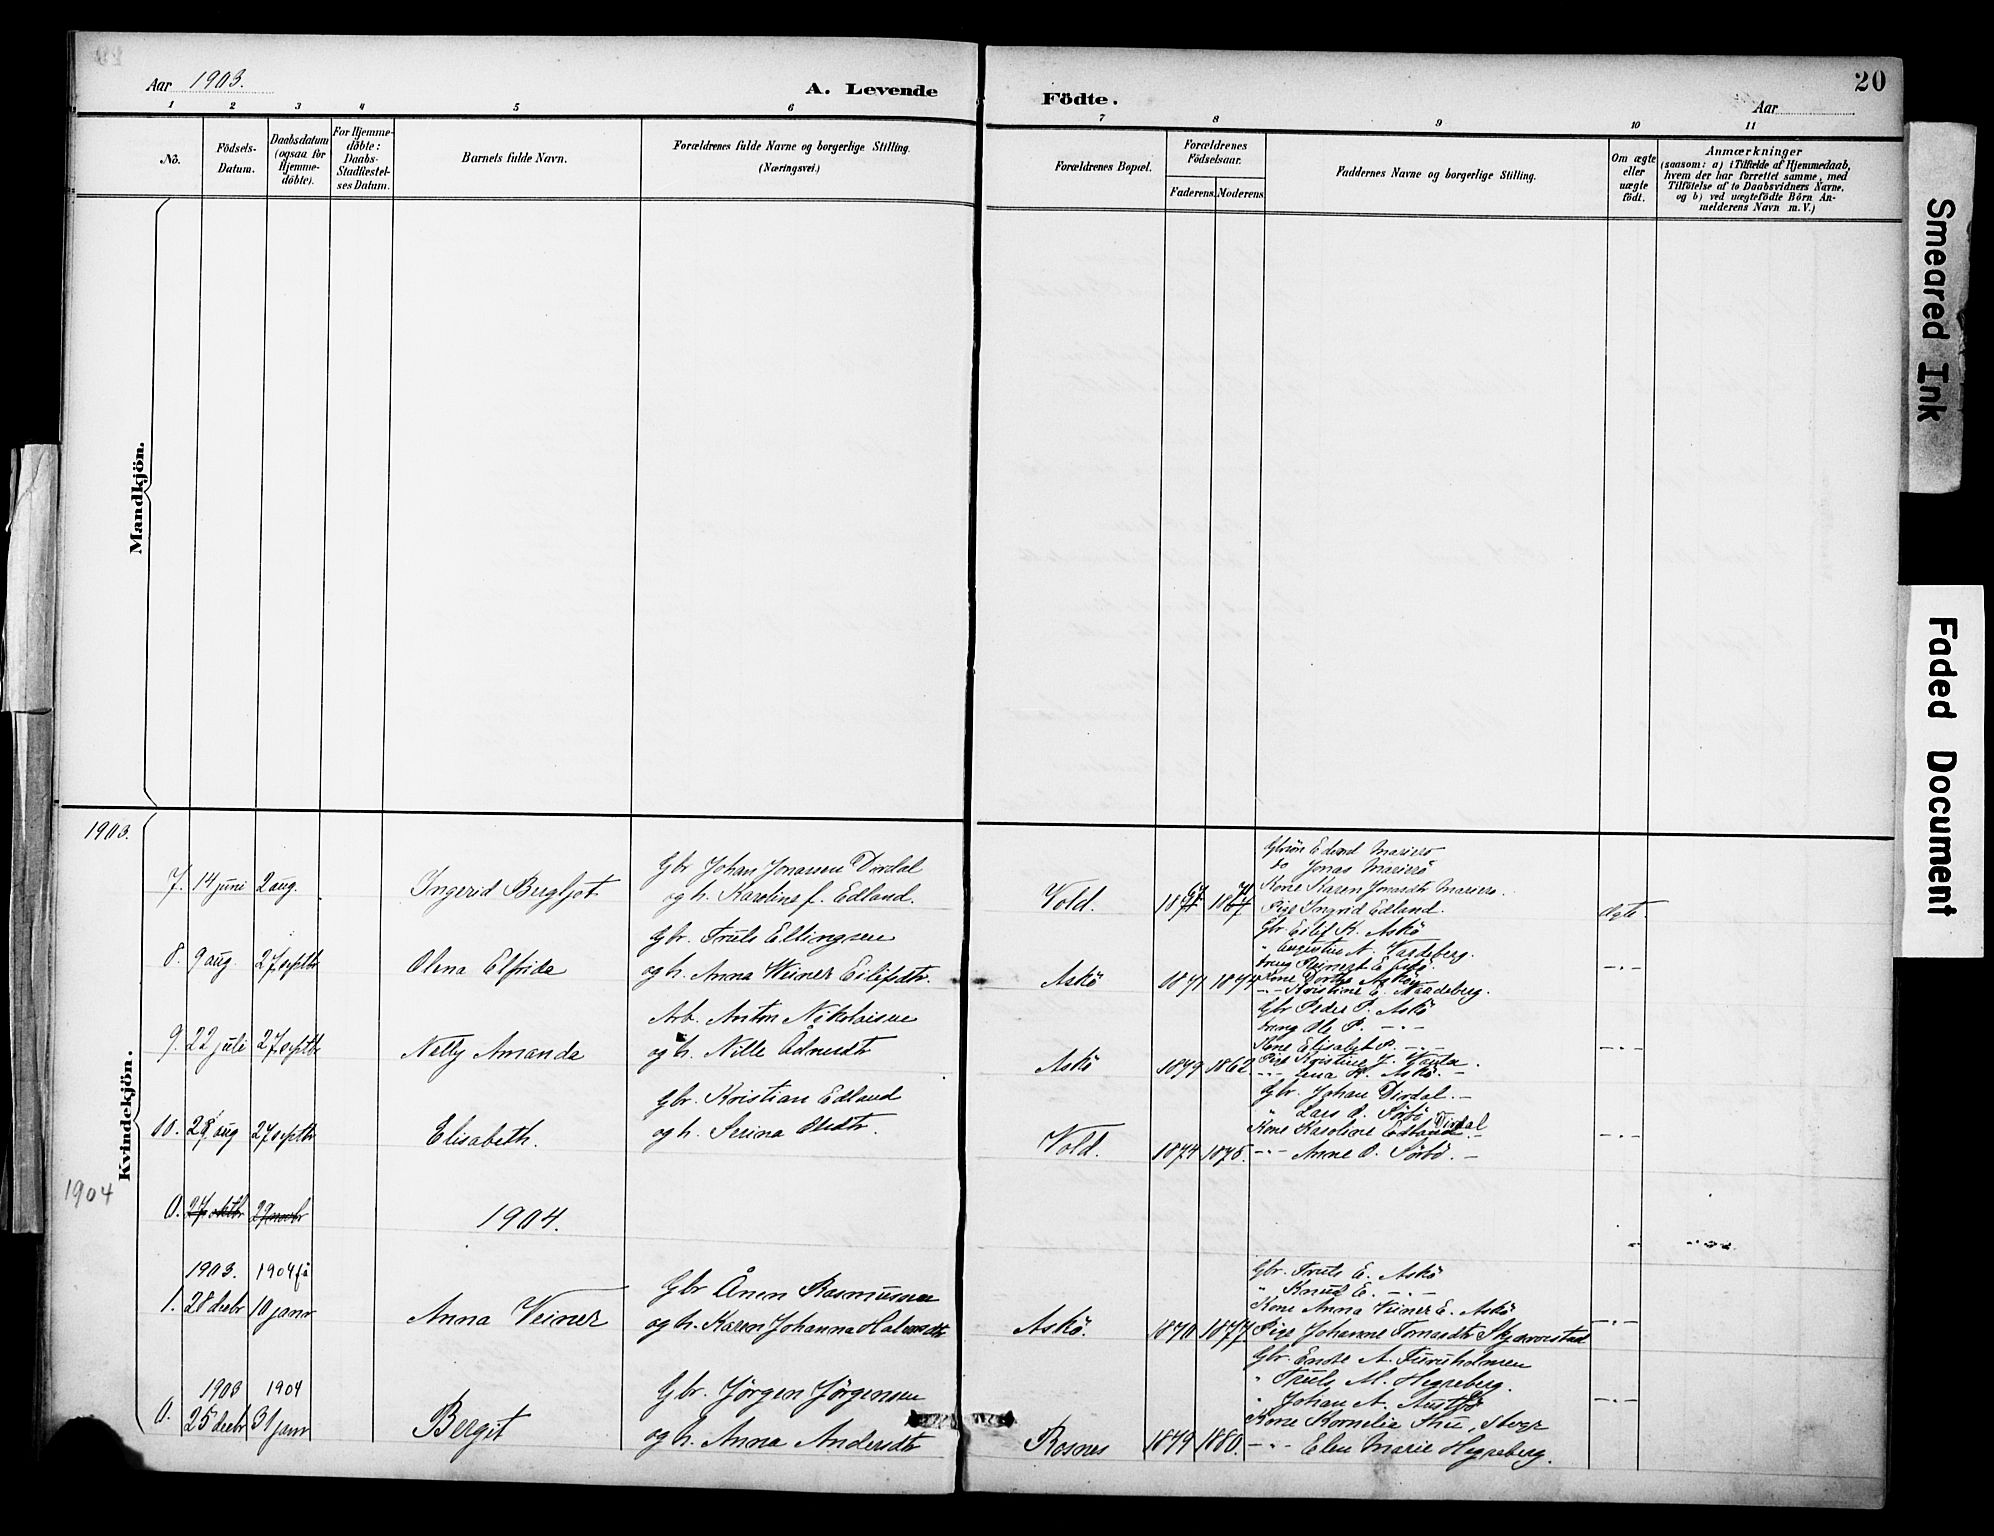 20
Aar 1903.
A. Levende
Födte.
Aar
1 2 3 4 5 6 7 8 9 10 11
No.
Födsels-
Datum.
Daabsdatum
(ogsaa for
Hjemme-
döbte).
For Hjemme-
döbte:
Daabs-
Stadfæstel-
ses Datum.
Barnets fulde Navn.
Forældrenes fulde Navne og borgerlige Stilling.
(Næringsvei.)
Forældrenes Bopæl.
Forældrenes
Födselsaar.
Faderens. Moderens.
Faddernes Navne og borgerlige Stilling.
Om ægte
eller
uægte
födt.
Anmærkninger
(saasom: a) i Tilfælde af Hjemmedaab,
hvem der har forrettet samme, med
Tilföielse af to Daabsvidners Navne,
og b) ved uægtefödte Börn An-
melderens Navn m. V.)
Mandkjön.
Kvindekjön.
1903.
7. 14 juni 2 aug. Ingerid Bergljot
Gbr Johan Jonassen Dirdal
og h. Karoline f. Edland.
Vold. 1867 1871
Jonas Mariero
Kone Karen Jonasdt Mariero.
Pige Ingrid Edland.
Ægte
8. 9 aug. 27 septbr Olena Elfrida
Gbr. Truls Ellingsen
og h. Anna Weiner Eilifsdtr.
Askö 1871 1874
Gbr Eilif K. Askö
" Augustin A. Vaadeberg.
Kone Dorthe Askö
-"- Kristine E. Vaadeberg.
-"-
9. 22 juli 27 septbr Nelly Amanda
Arb. Anton Nikolaisen
og h. Nille Ådnesdtr
Askö 1879 1862
Gbr Peder P. Askö
Ung Ole P. -"-
Kone Elisabet P. -"-
Pige Kristine J.
-"- Lina K. Askö.
-"-
10. 28 aug 27 septbr Elisabeth.
Gbr. Kristian Edland
og h. Serina Olsdtr.
Vold. 1874 1875.
Gbr. Johan Dirdal. -
" Lars O. Sörbö
Kone Karoline Edland Dirdal
-"- Anne O. Sörbö. -
-"-
1904
0. 27 oktbr 29 novbr
1904.
1903. 1904
1. 28 decbr 10 janr Anna Veiner
Gbr Ånen Rasmussen
og h. Karen Johanna Halvorsdtr
Askö. 1870 1877
Gbr. Truls E. Askö
" Knud E. -"-
Kone Anna Weiner E. Askö
Pige Johanne Tomasdtr Skjærvestad
-"-
1903 1904
0. 25 decbr 31 janr Bergit
Gbr. Jörgen Jörgensen
og h. Anna Andersdtr
Rosnes 1879 1880.
Gbr. Endre A. Furuholmen
" Truls M. Hegreberg.
" Johan A. Austbö
Kone Kornelia Thu,
-"- Elen Marie Hegreberg.
-"-
Smeared Ink
Faded Document